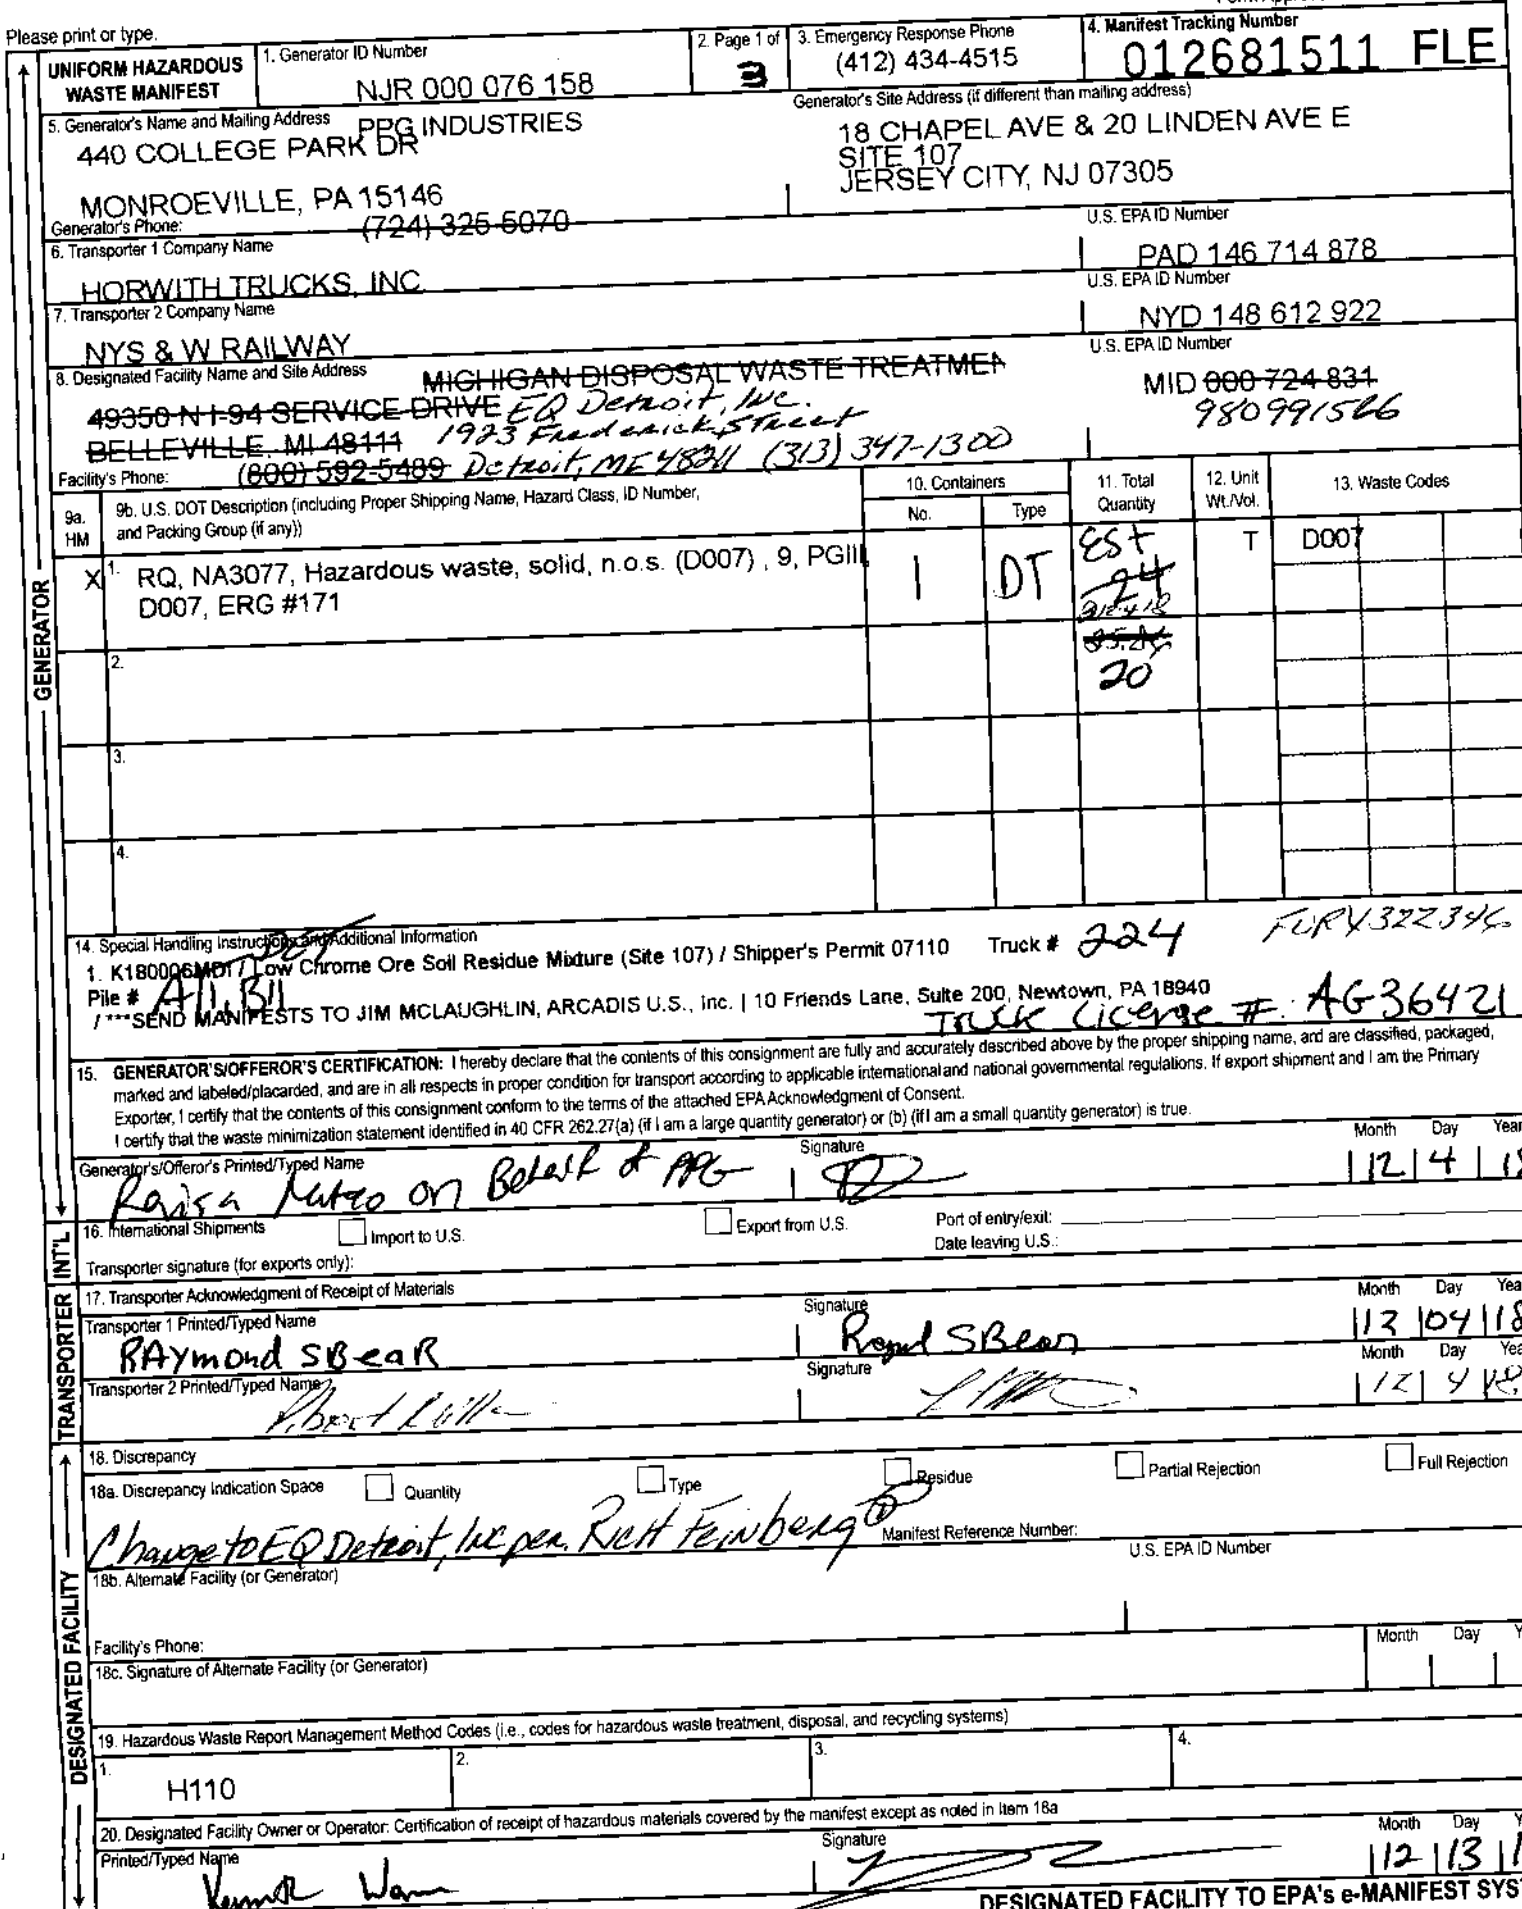 Please print or type.
UNIFORM HAZARDOUS WASTE MANIFEST
1. Generator ID Number
NJR 000 076 158
2. Page 1 of
3
3. Emergency Response Phone
(412) 434-4515
4. Manifest Tracking Number
012681511 FLE
5. Generator's Name and Mailing Address
PPG INDUSTRIES
440 COLLEGE PARK DR
MONROEVILLE, PA 15146
Generator's Phone:
(724) 325-5070
Generator's Site Address (if different than mailing address)
18 CHAPEL AVE & 20 LINDEN AVE E
SITE 107
JERSEY CITY, NJ 07305
6. Transporter 1 Company Name
HORWITH TRUCKS, INC
U.S. EPA ID Number
PAD 146 714 878
7. Transporter 2 Company Name
NYS & W RAILWAY
U.S. EPA ID Number
NYD 148 612 922
8. Designated Facility Name and Site Address
MICHIGAN DISPOSAL WASTE TREATMEN
49350 N I-94 SERVICE DRIVE EQ Detroit, Inc.
BELLEVILLE, MI 48111 1923 Frederick Street
Facility's Phone: (800) 592-5489 Detroit, ME 48211 (313) 347-1300
U.S. EPA ID Number
MID 000 724 831
980991566
9a. HM
9b. U.S. DOT Description (including Proper Shipping Name, Hazard Class, ID Number, and Packing Group (if any))
10. Containers
No.
Type
11. Total Quantity
12. Unit Wt./Vol.
13. Waste Codes
X
1. RQ, NA3077, Hazardous waste, solid, n.o.s. (D007) , 9, PGIII
D007, ERG #171
1
DT
Est
24
20
T
D007
2.
3.
4.
14. Special Handling Instructions and Additional Information
1. K180006MDI / Low Chrome Ore Soil Residue Mixture (Site 107) / Shipper's Permit 07110 Truck # 224
DET
FURX322346
Pile # A11, B11
/ ***SEND MANIFESTS TO JIM MCLAUGHLIN, ARCADIS U.S., Inc. | 10 Friends Lane, Suite 200, Newtown, PA 18940
Truck License #: AG36421
15. GENERATOR'S/OFFEROR'S CERTIFICATION: I hereby declare that the contents of this consignment are fully and accurately described above by the proper shipping name, and are classified, packaged,
marked and labeled/placarded, and are in all respects in proper condition for transport according to applicable international and national governmental regulations. If export shipment and I am the Primary
Exporter, I certify that the contents of this consignment conform to the terms of the attached EPA Acknowledgment of Consent.
I certify that the waste minimization statement identified in 40 CFR 262.27(a) (if I am a large quantity generator) or (b) (if I am a small quantity generator) is true.
Generator's/Offeror's Printed/Typed Name
on Behalf of PPG
Signature
Month Day Year
12 4 18
16. International Shipments
Import to U.S.
Export from U.S.
Port of entry/exit:
Date leaving U.S.:
Transporter signature (for exports only):
17. Transporter Acknowledgment of Receipt of Materials
Transporter 1 Printed/Typed Name
RAymond SBeaR
Signature
Month Day Yea
12 04 18
Transporter 2 Printed/Typed Name
Signature
Month Day Yea
12 4 18
18. Discrepancy
18a. Discrepancy Indication Space
Quantity
Type
Residue
Partial Rejection
Full Rejection
Change to EQ Detroit, Inc per. Rich Feinberg
Manifest Reference Number:
18b. Alternate Facility (or Generator)
U.S. EPA ID Number
Facility's Phone:
18c. Signature of Alternate Facility (or Generator)
Month Day Y
19. Hazardous Waste Report Management Method Codes (i.e., codes for hazardous waste treatment, disposal, and recycling systems)
1.
H110
2.
3.
4.
20. Designated Facility Owner or Operator: Certification of receipt of hazardous materials covered by the manifest except as noted in Item 18a
Printed/Typed Name
Signature
Month Day Y
12 13 1
DESIGNATED FACILITY TO EPA's e-MANIFEST SYST
GENERATOR
INT'L
TRANSPORTER
DESIGNATED FACILITY